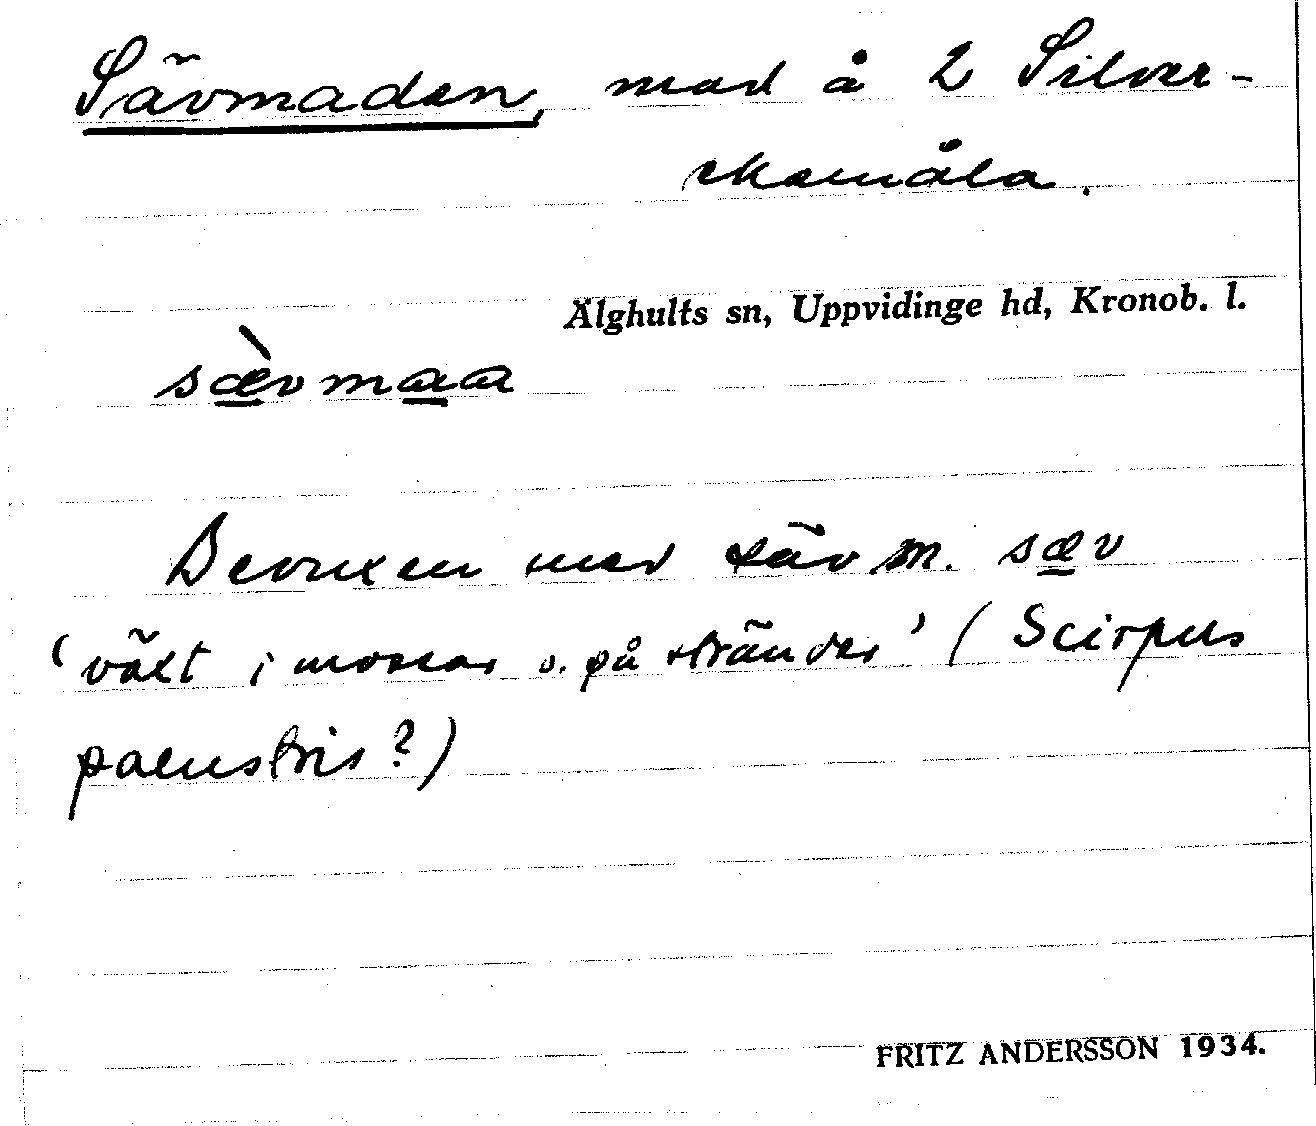 Sävmaden, mad å 2 Silver-
ekemåla.
Älghults sn, Uppvidinge hd, Kronob. l.
sæ̀vmaa
Bevuxen med säv m. sæv
'växt i mossar o. på stränder' (Scirpus
palustris?)
FRITZ ANDERSSON 1934.